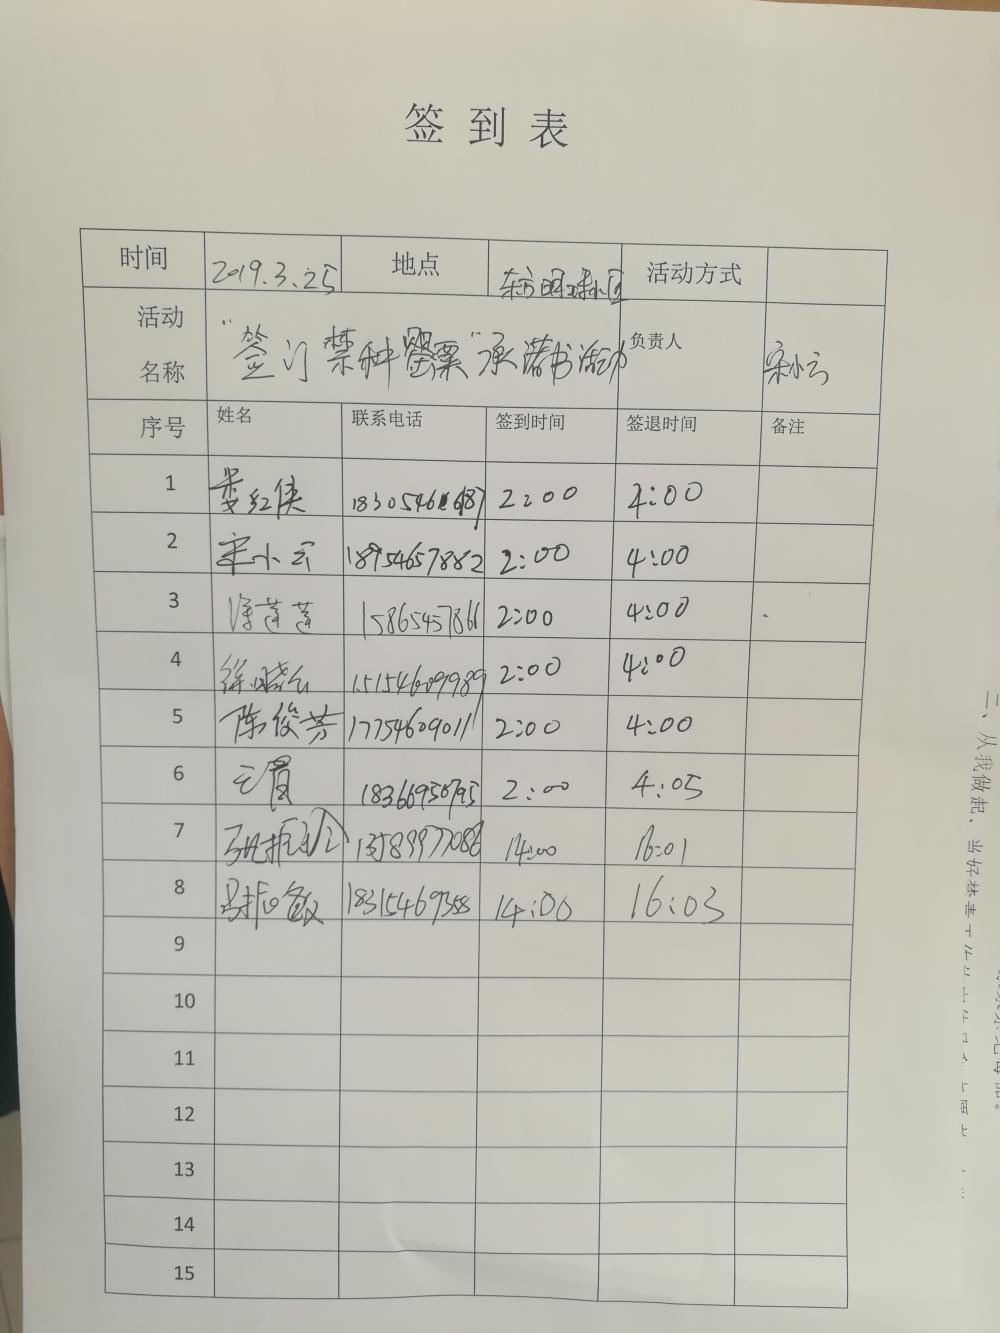 签到表
时间 2019.3.25 地点 东方明珠小区 活动方式
活动名称 “签订禁种罂粟”承诺书活动 负责人 宋小云
序号 姓名 联系电话 签到时间 签退时间 备注
1 娄红侠 2:00 4:00
2 宋小云 18954657882 2:00 4:00
3 徐莲莲 15865457861 2:00 4:00
4 徐晓云 15154609989 2:00 4:00
5 陈俊芳 17754609011 2:00 4:00
6 2:00 4:05
7 13589977086 14:00 16:01
8 18315469358 14:00 16:03
9
10
11
12
13
14
15
二、从我做起，当好禁毒